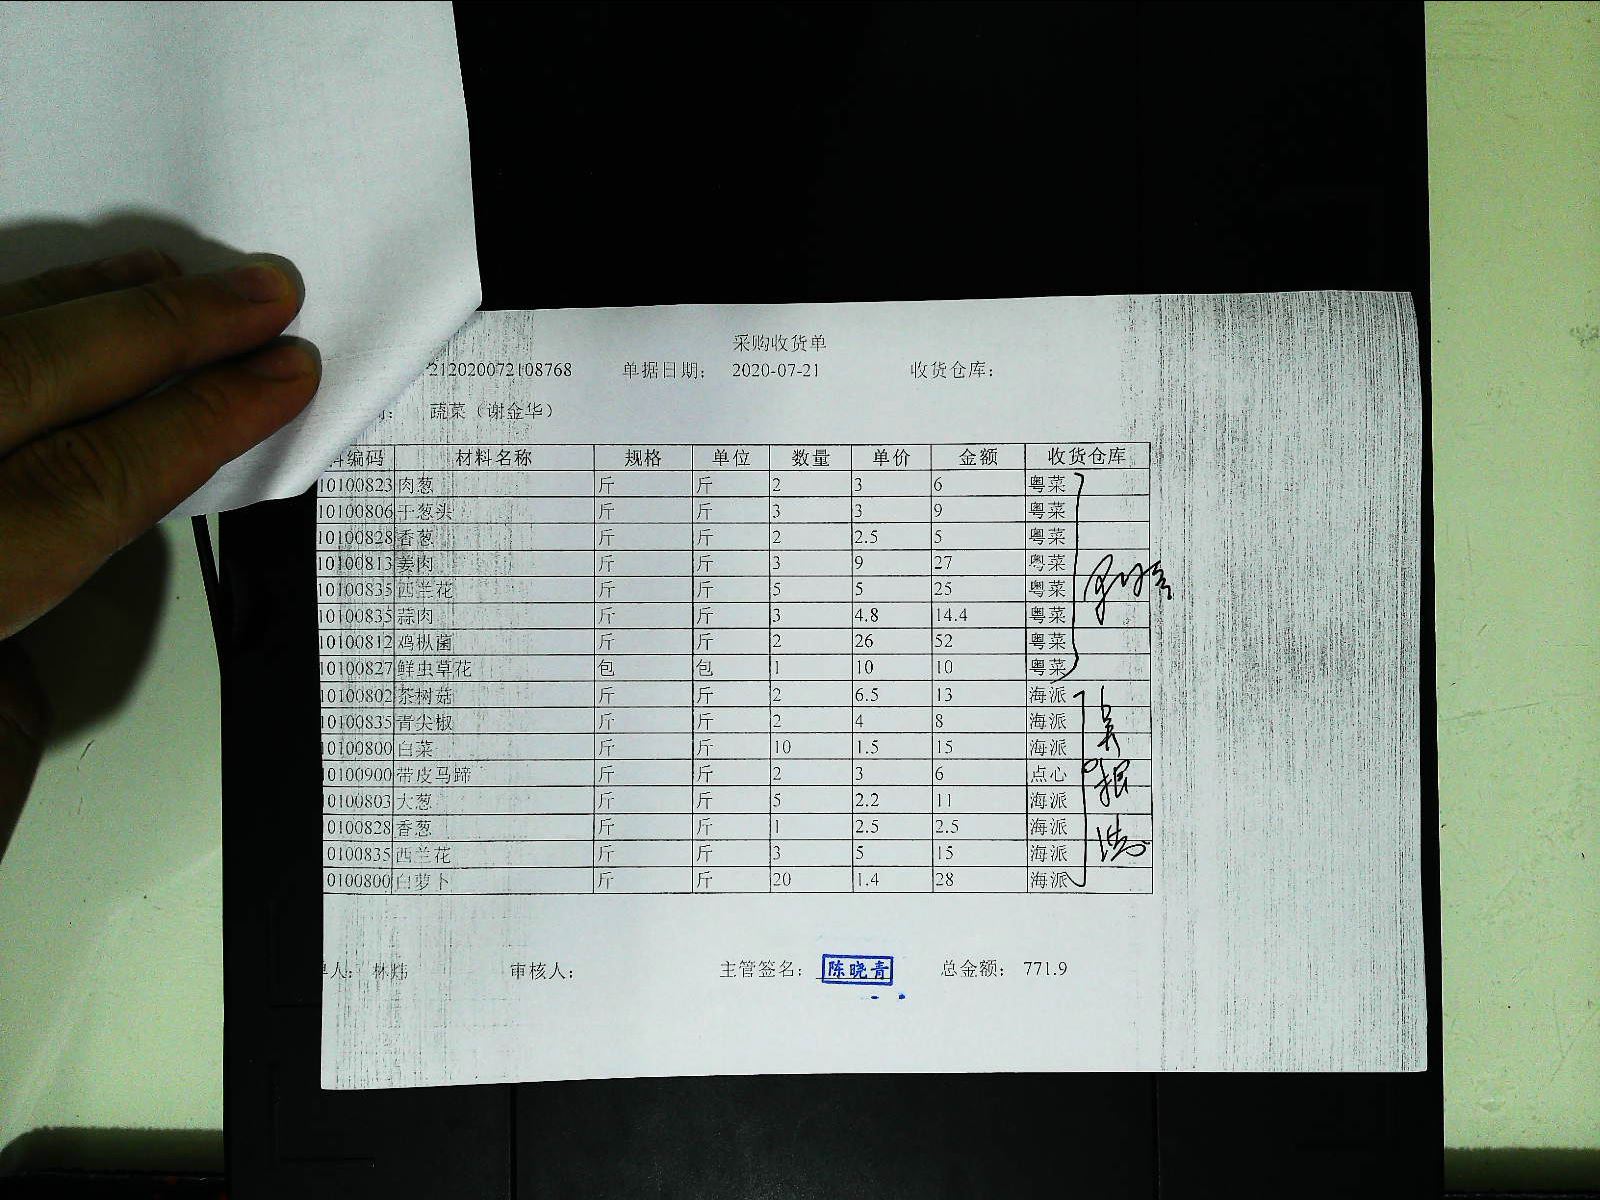 采购收货单
212020072108768 单据日期： 2020-07-21 收货仓库：
蔬菜（谢金华）
编码 材料名称 规格 单位 数量 单价 金额 收货仓库
10100823 肉葱 斤 斤 2 3 6 粤菜
10100806 干葱头 斤 斤 3 3 9 粤菜
10100828 香葱 斤 斤 2 2.5 5 粤菜
10100813 姜肉 斤 斤 3 9 27 粤菜
10100835 西兰花 斤 斤 5 5 25 粤菜
10100835 蒜肉 斤 斤 3 4.8 14.4 粤菜
10100812 鸡枞菌 斤 斤 2 26 52 粤菜
10100827 鲜虫草花 包 包 1 10 10 粤菜
10100802 茶树菇 斤 斤 2 6.5 13 海派
10100835 青尖椒 斤 斤 2 4 8 海派
10100800 白菜 斤 斤 10 1.5 15 海派
10100900 带皮马蹄 斤 斤 2 3 6 点心
10100803 大葱 斤 斤 5 2.2 11 海派
10100828 香葱 斤 斤 1 2.5 2.5 海派
0100835 西兰花 斤 斤 3 5 15 海派
0100800 白萝卜 斤 斤 20 1.4 28 海派
人： 林炜 审核人： 主管签名： 陈晓青 总金额： 771.9